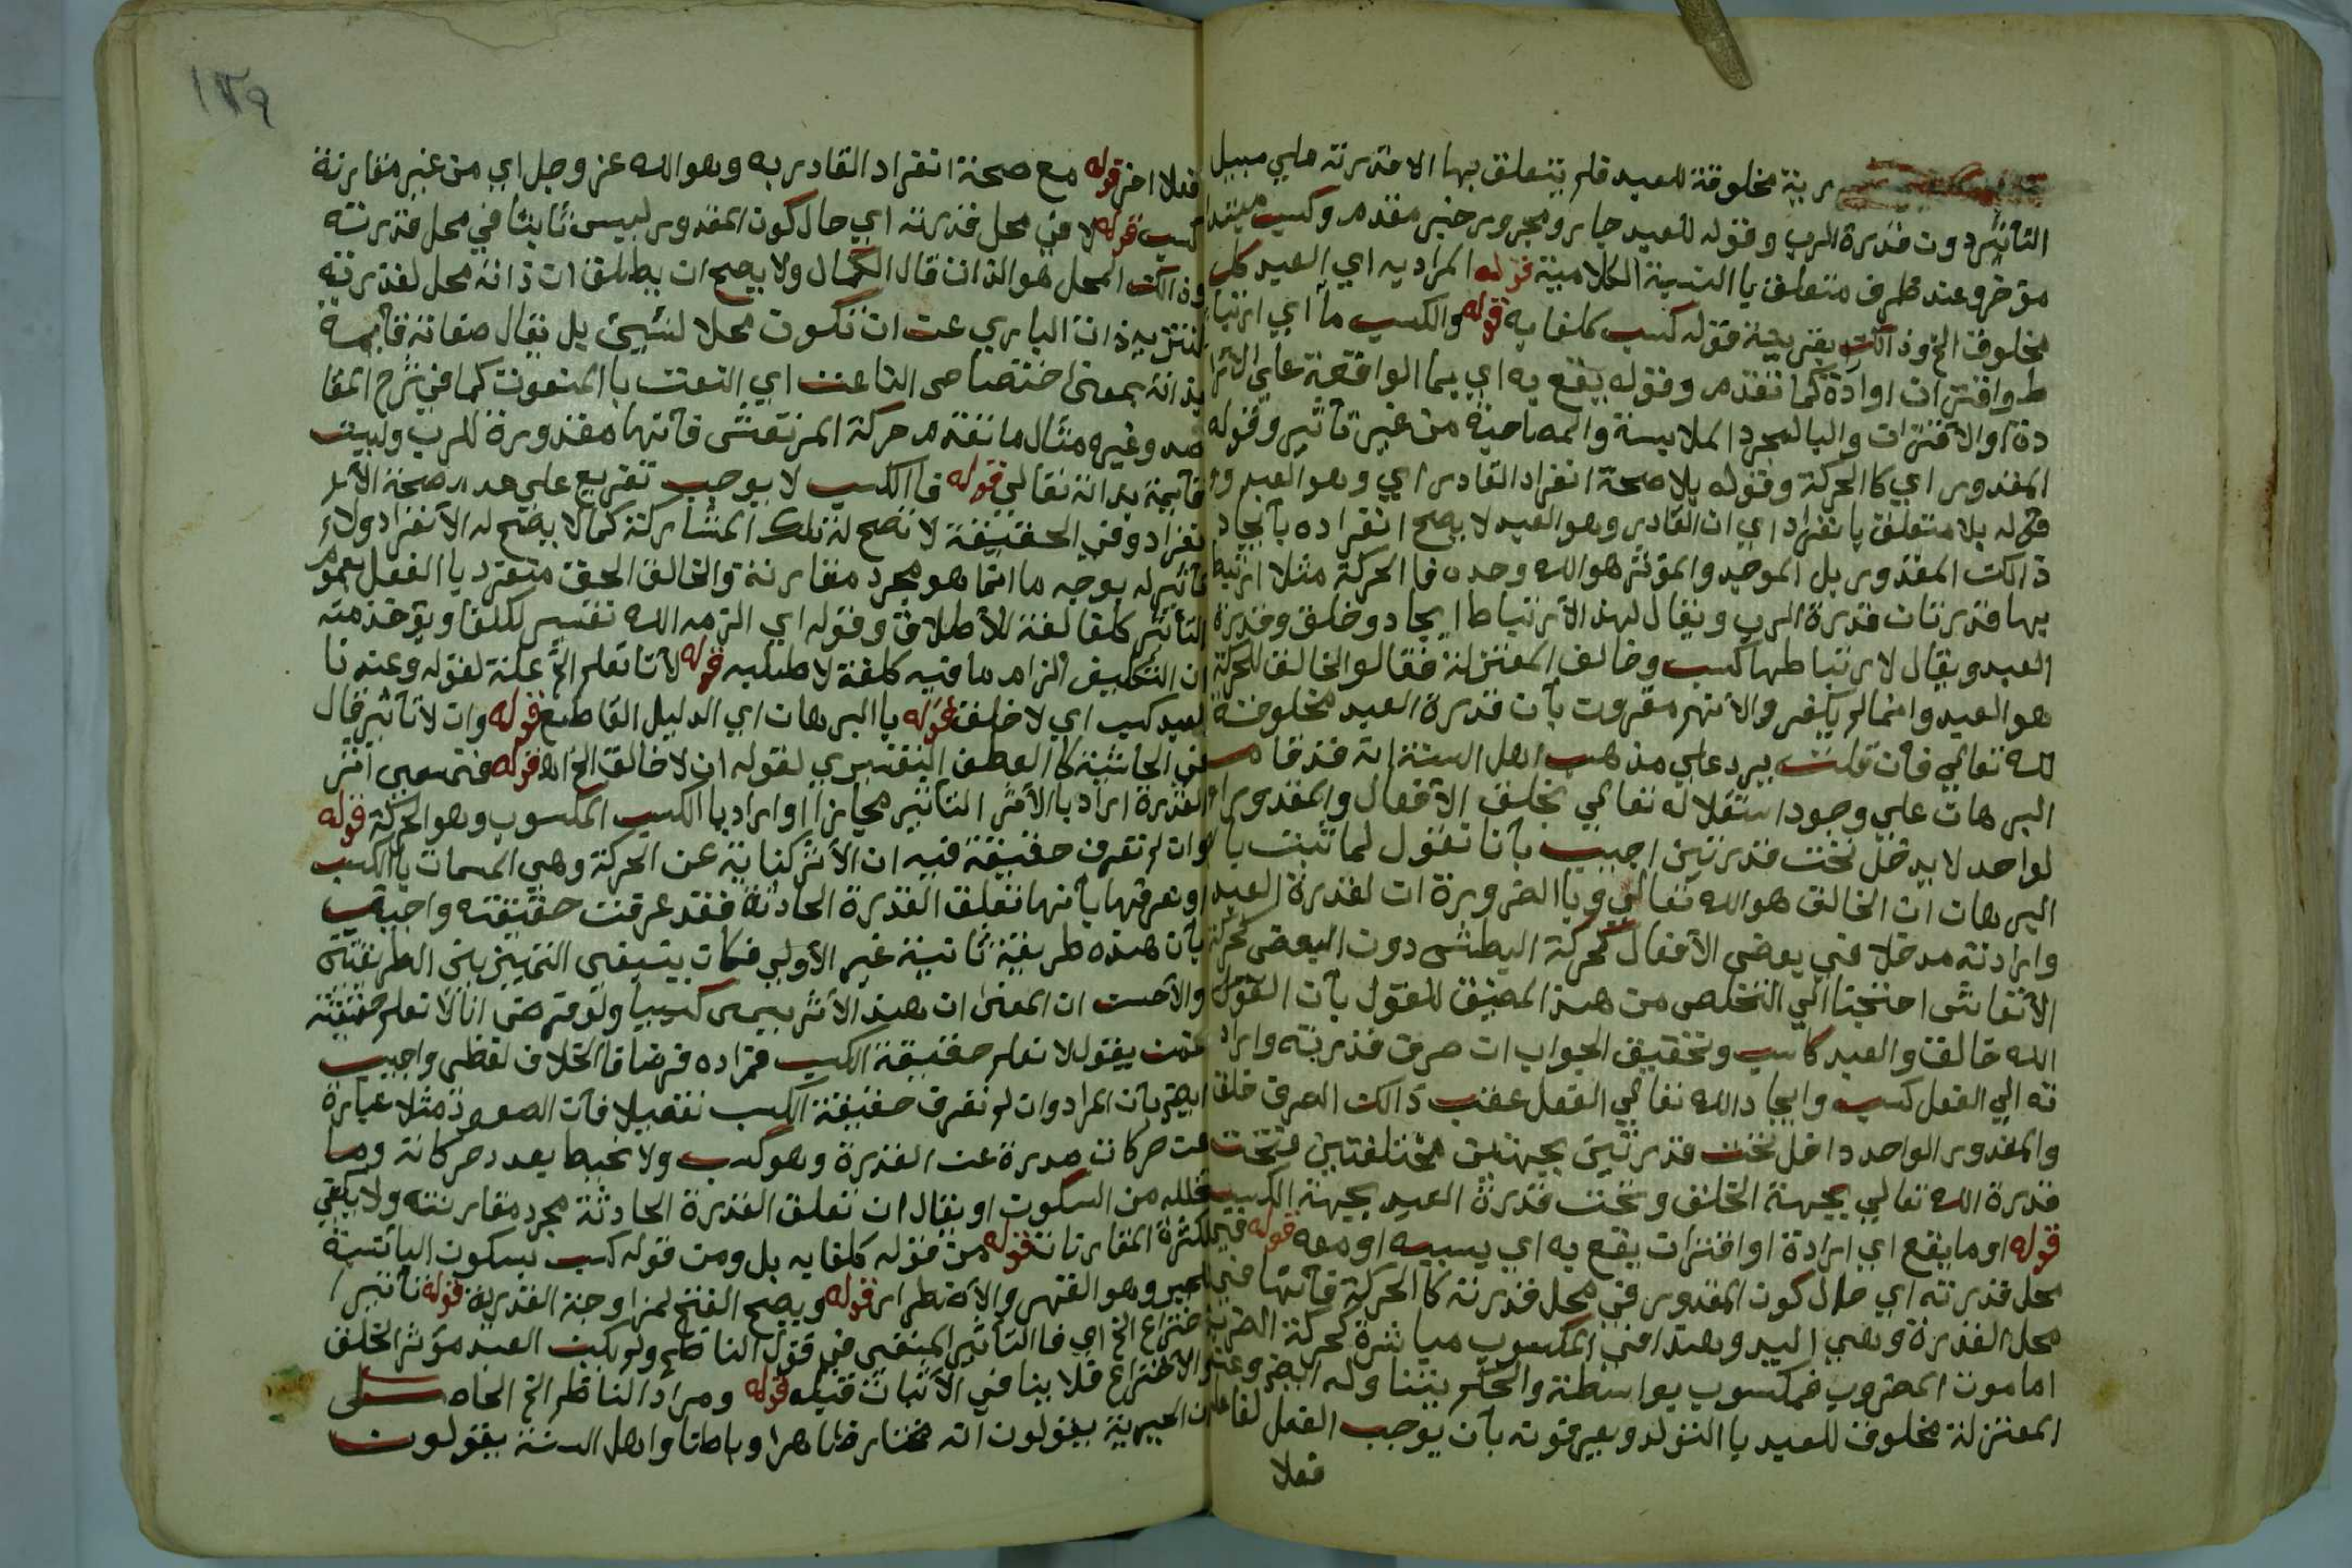 رية مخلوقة للعبد فلم يتعلق بها الا قدرته علي سبيل
التأثير دون قدرة الرب وقوله للعبد جار ومجرور خبر مقدم وكسب مبتدا
مؤخر وعند ظرف متعلق باالنسبة الكلامية قوله المراد به اي العبد كل
مخلوق الخ وذالك بقرينة قوله كسب كلفا به قوله والكسب ما اي ارتبا
ط واقتران ارادة كما تقدم وقوله يقع به اي بما الواقعة علي الارا
دة او الأقتران والبا لمجرد الملابسة والمصاحبة من غير تأثير وقوله
المقدور اي كاالحركة وقوله بلا صحة انفراد القادر اي وهو العبد و
قوله بلا متعلق بانفراد اي ان القادر وهو العبد لا يصح انفراده بأيجاد
ذالك المقدور بل الموجد والمؤثر هو الله وحده فاالحركة مثلا ارتبط
بها قدرتان قدرة الرب ويقال لهذ الأرتباط ايجاد وخلق وقدرة
العبد ويقال لارتباطها كسب وخالف المعتزلة فقالو الخالق للحركة
هو العبد وانمالم يكفر والأنهم مقرون بأن قدرة العبد مخلوقة
لله تعالي فأن قلت يرد علي مذهب اهل السنة انه قد قام
البرهان علي وجود استقلاله تعالي بخلق الأفعال والمقدور ا
لواحد لا يدخل تحت قدرتين اجيب بأنا نقول لما ثبت با
البرهان ان الخالق هو الله تعالي وباالضرورة ان لقدرة العبد
وارادته مدخلا في بعض الأفعال كحركة البطش دون البعض كحركة
الأرتعاش احتجنا الي التخلص من هذ المضيق للقول بأن القول
الله خالق والعبد كاسب وتحقيق الجواب ان صرف قدرته واراد
ته الي الفعل كسب وايجاد الله تعالي الفعل عقب ذالك الصرف خلق
والمقدور الواحد داخل تحت قدرتين بجهتين مختلفتين فتحت
قدرة الله تعالي بجهة الخلق وتحت قدرة العبد بجهة الكسب
قوله او ما يقع اي ارادة او اقتران يقع به اي بسببه او معه قوله في
محل قدرته اي حال كون المقدور في محل قدرته كاالحركة فأنها في
محل القدرة وهي اليد وهذا في المكسوب مباشرة كحركة الضرب
اما موت المضروب فمكسوب بواسطة والحكم يتناوله ايضا وعند
المعتزلة مخلوق للعبد باالتولد ويعرفونه بأن يوجب الفعل لفاعله
فعلا
١٣٩
فعلا اخر قوله مع صحة انفراد القادر به وهو الله عز وجل اي من غير مقارنة
كسب قوله لا في محل قدرته اي حال كون المقدور ليس ثابتا في محل قدرته
وذالك المحل هو الذات قال الكمال ولا يصح ان يطلق ان ذاته محل لقدرته
لتنزيه ذات الباري عن ان تكون محلا لشيئ بل يقال صفاته قائمة
بذاته بمعنى اختصاص الناعت اي النعت باالمنعوت كما في شرح المقا
صد وغيره مثال ما تقدم حركة المرتعش فأنها مقدورة للرب وليست
قائمة بذاته تعالي قوله فاالكسب لا يوجب تفريع علي عدم صحة الأ
نفراد وفي الحقيقة لا تصح له تلك المشاركة كما لا يصح له الأنفراد ولا
تأثير له بوجه ما انما هو مجرد مقارنة والخالق الحق متفرد باالفعل بعموم
التأثير كلفا لغة للأطلاق وقوله اي الزمه الله تفسير لكلفا ويؤخذ منه
ان التكليف الزام ما فيه كلفة لا طلبه قوله لأنا نعلم الخ علة لقوله وعندنا
للعبد كسب اي لا خلق قوله باالبرهان اي الدليل القاطع قوله وان لا تأثير قال
في الحاشية كاالعطف التفسيري لقوله ان لا خالق الخ اه قوله فتسمى اثر
القدرة اراد باالأثر التأثير مجازا او اراد باالكسب المكسوب وهو الحركة قوله
وان لم نعرف حقيقة فيه ان الأثر كناية عن الحركة وهي المسمات باالكسب
ونعرفها بأنها تعلق القدرة الحادثة فقد عرفت حقيقته واجيب
بأن هذه طريقة ثانية غير الأولي فكان ينبغي التمييز بين الطريقتين
والأحسن ان المعنى ان هذ الأثر يسمى كسبا ولو فرض انا لا نعلم حقيقته
فمن يقول لا نعلم حقيقة الكسب فمراده فرضا فاالخلاف لفظي واجيب
ايضا بأن المراد وان لم نعرف حقيقة الكسب تفصيلا فأن الصعود مثلا عبارة
عن حركان صدرة عن القدرة وهو كسب ولا نحيط بعدد حركاته وما
تخلله من السكون او يقال ان تعلق القدرة الحادثة مجرد مقارنته ولا يكفي
لكثرة المقارنات قوله من قوله كلفا به بل ومن قوله كسب بسكون البا نسبة
للجبر وهو القهر والأضطرار قوله ويصح الفتح لمزاوجة القدرية قوله تأثير ا
ختراع الخ اي فاالتأثير المنفي في قول الناظم ولم يكن العبد مؤثر الخلق
والاختراع فلا ينافي الأثبات قبله قوله ومراد الناظم الخ الحاصل
ان الجبرية يقولون انه مختار ظاهرا وباطنا واهل السنة يقولون